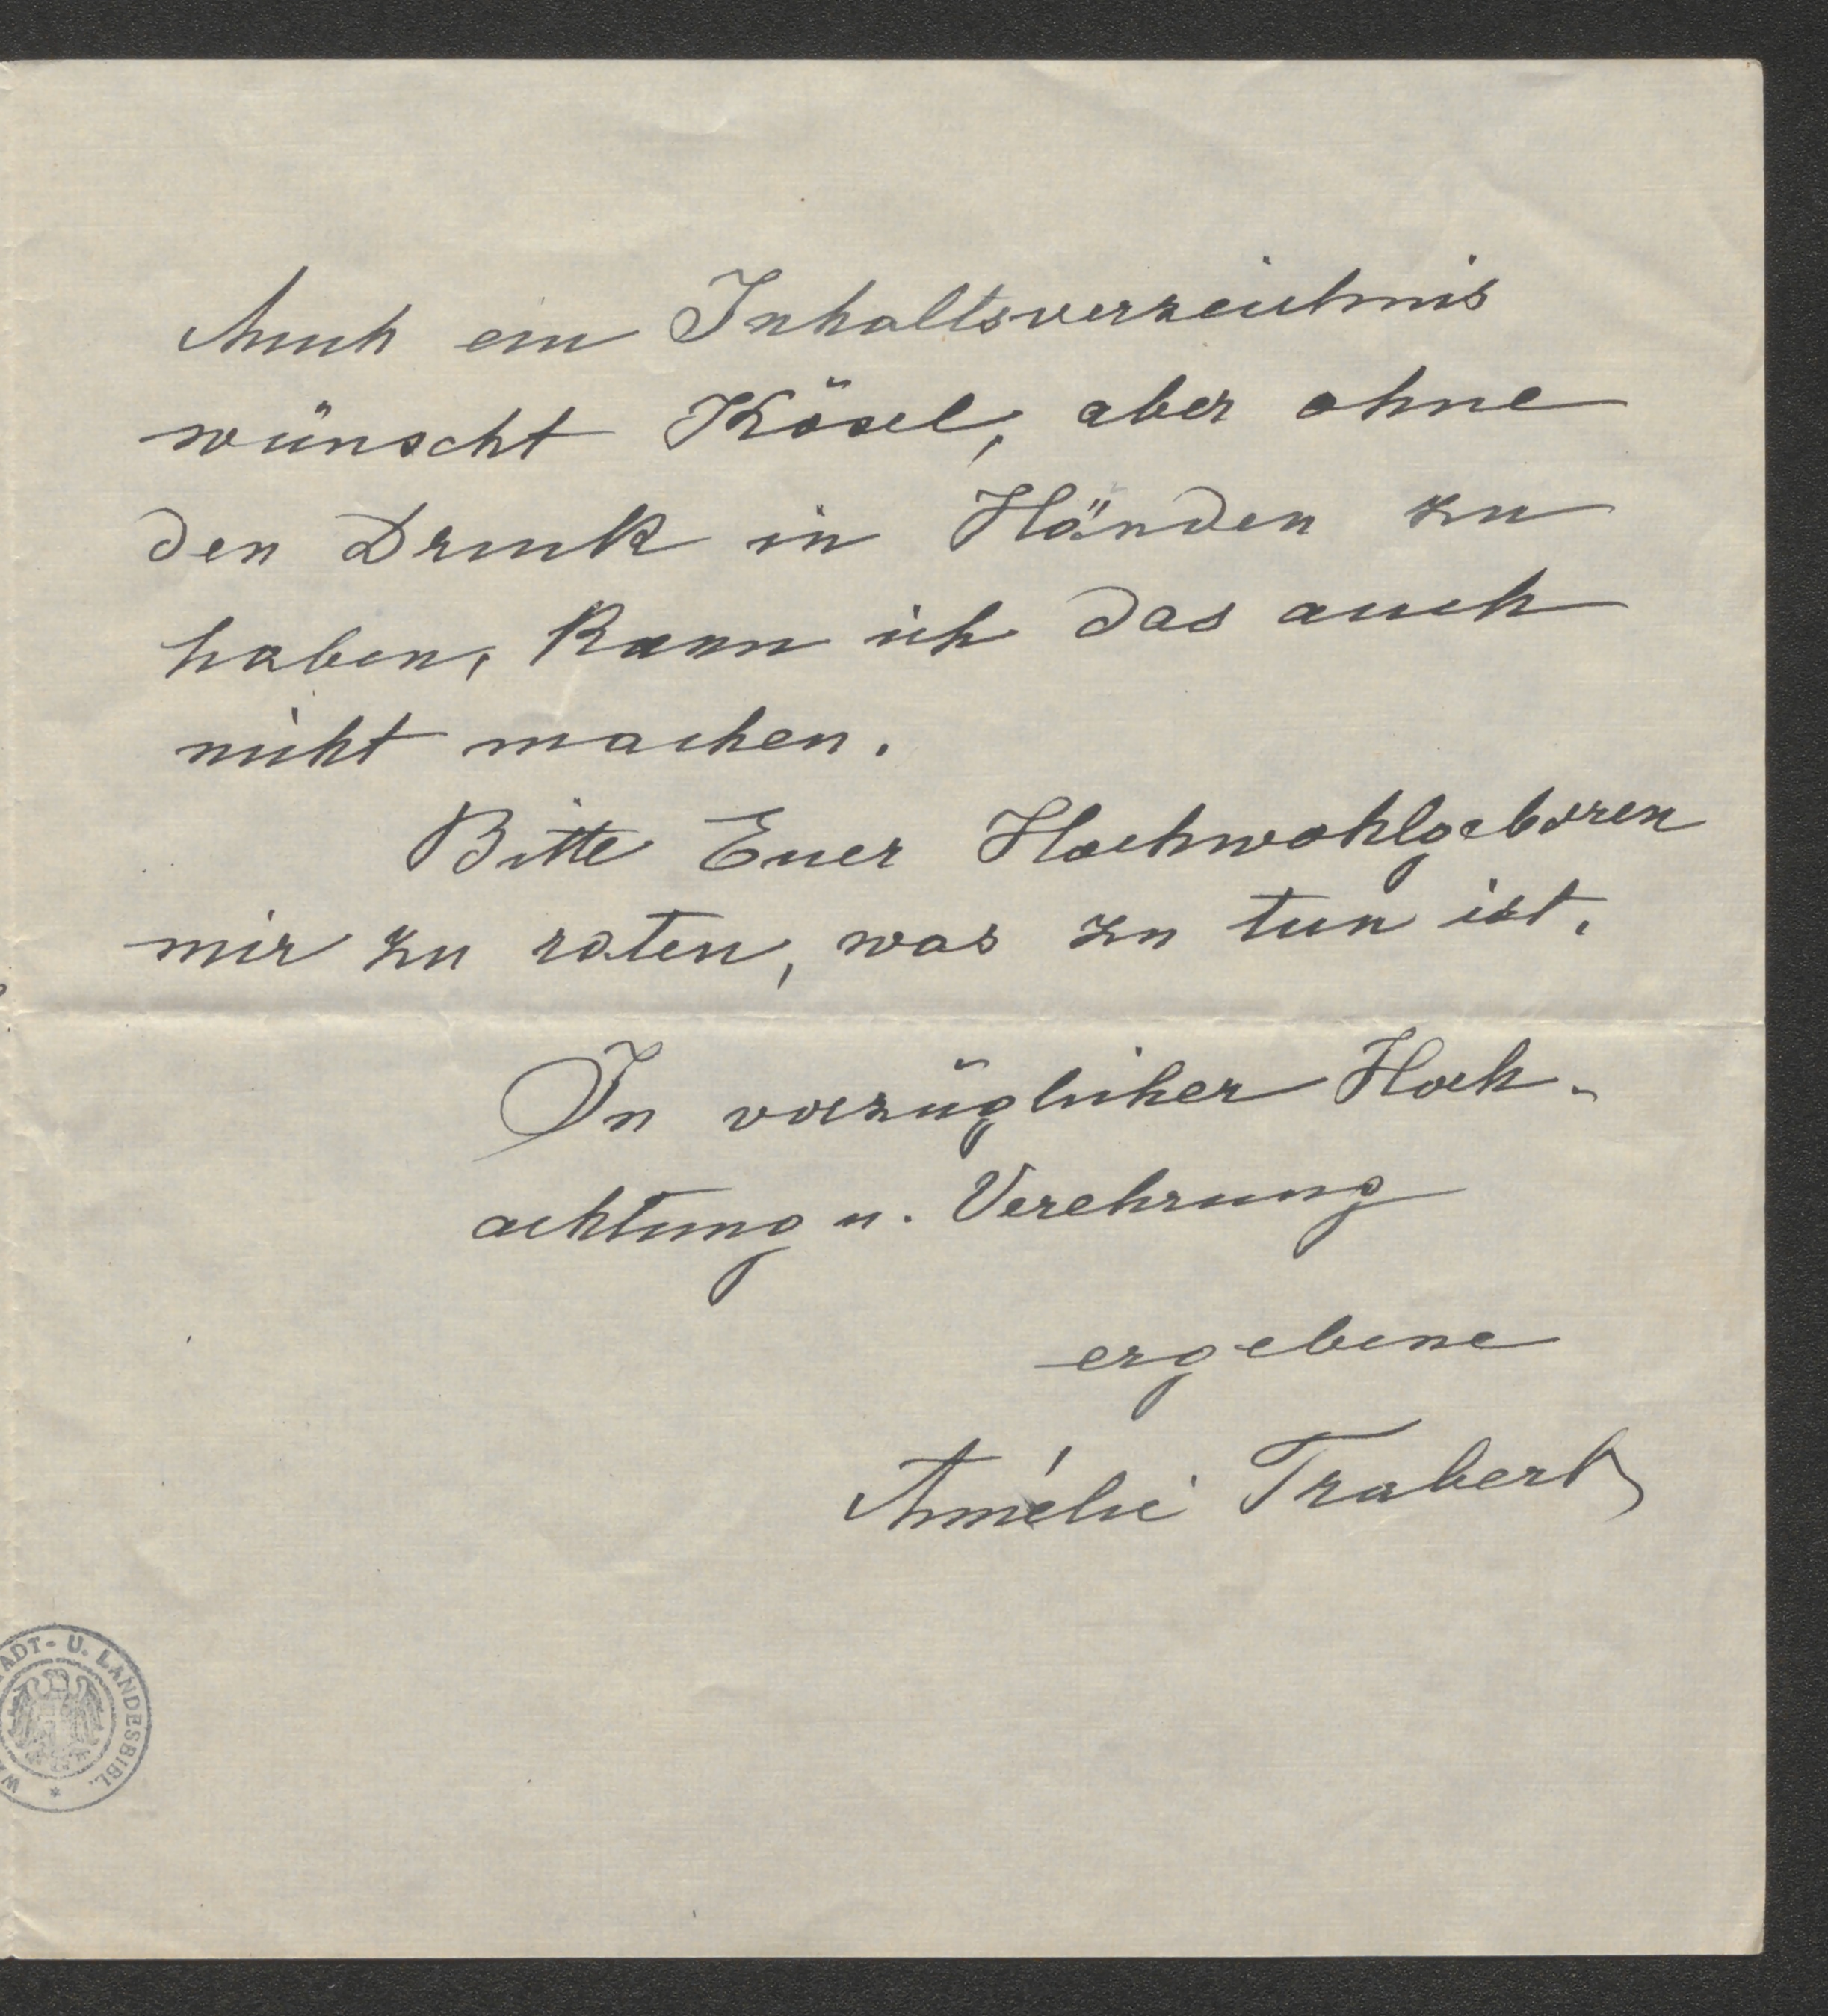 Auch ein Inhaltsverzeichnis
wünscht Kösel, aber ohne
den Druck in Händen zu
haben, kann ich das auch
nicht machen.
Bitte Euer Hochwohlgeboren
mir zu raten, was zu tun ist.
In vorzüglicher Hoch-
achtung u. Verehrung
ergebene
Amélie Trabert
ADT- U. LANDESBIBL.